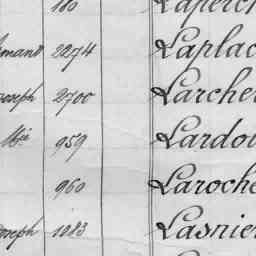 180 Laperch
mand 2274 Laplac
oseph 2700 Larche
Mie 959 Lardou
960 Laroche
Joseph 1083 Lasnier